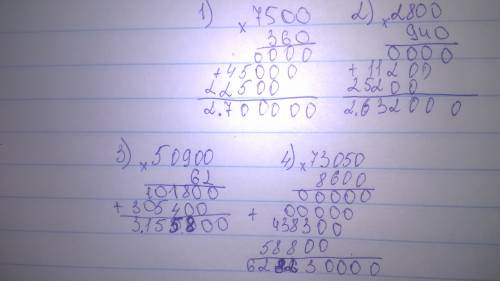 1) × 7500
360
0000
+ 45000
22500
2.700000
2) × 2800
940
0000
+ 11200
25200
2.632000
3) × 50900
62
101800
+ 305400
3.155800
4) × 73050
8600
00000
+ 00000
438300
58800